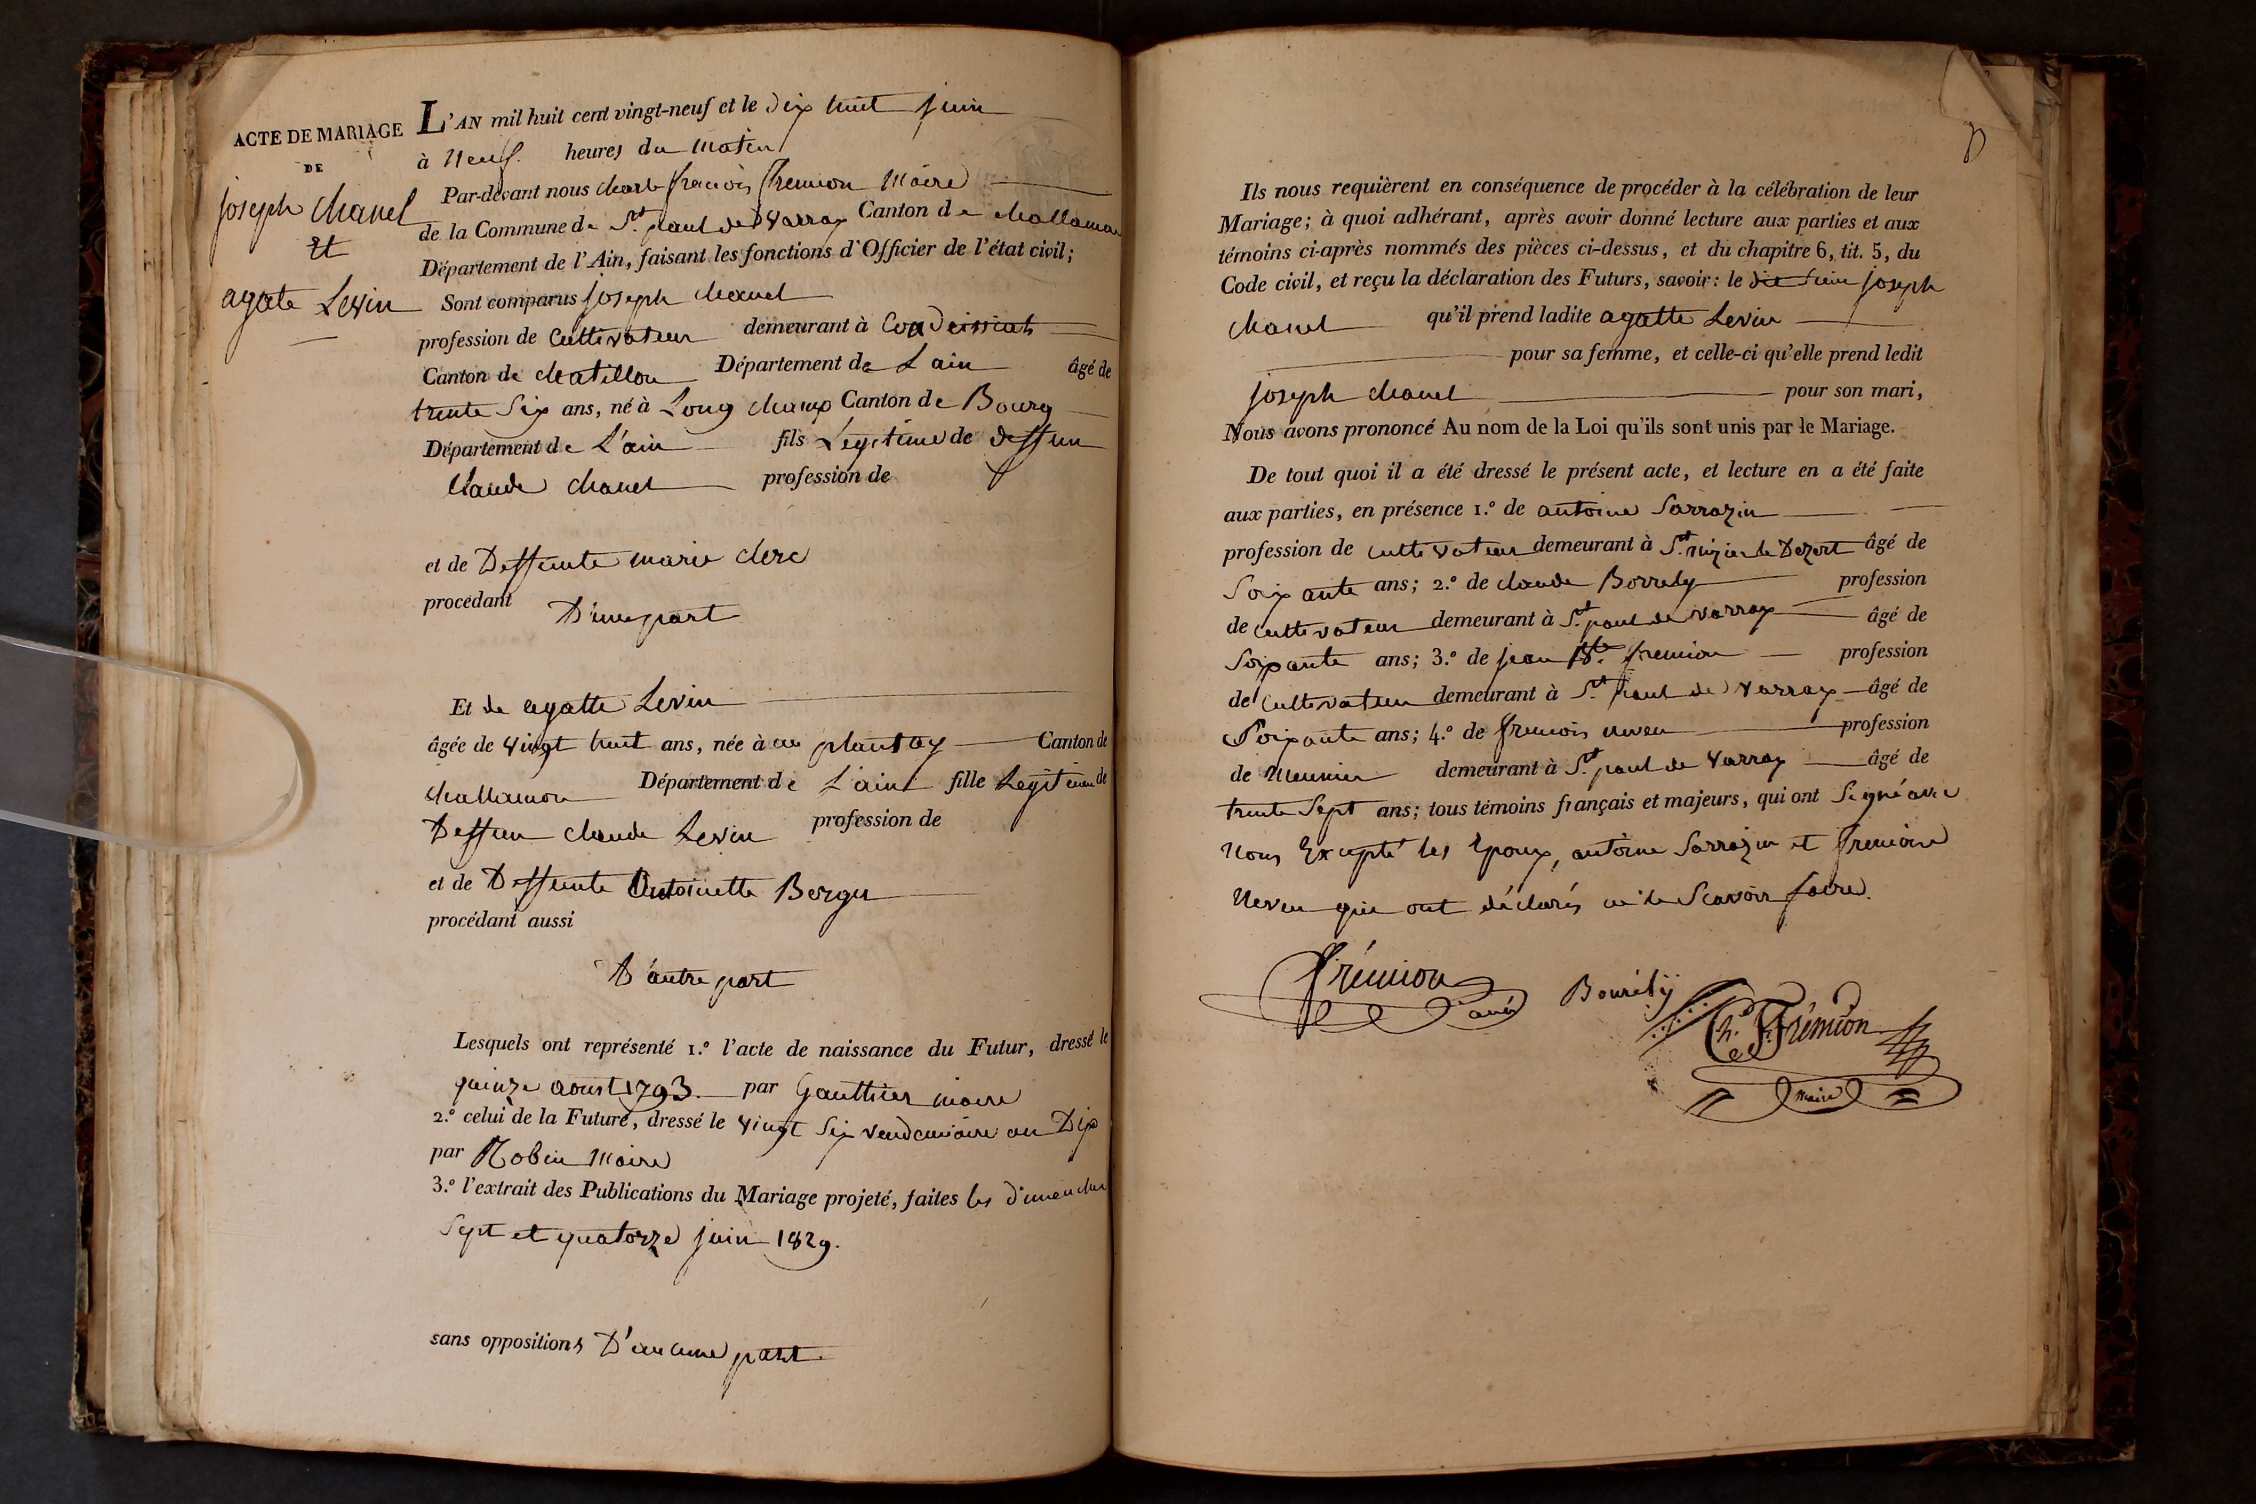 ACTE DE MARIAGE
DE
joseph Chanel
et
agate Levin
L'AN mil huit cent vingt-neuf et le dix huit juin
à neuf heures du matin
Par-devant nous charle francois fremion Maire
de la Commune de St. paul de Varrax Canton de challamon
Département de l'Ain, faisant les fonctions d'Officier de l'état civil;
Sont comparus joseph chanel
profession de Cultivateur demeurant à Condeissiat
Canton de chatillon Département de L'ain âgé de
trente Six ans, né à Long champ Canton de Bourg
Département de L'ain fils Legitime de deffun
Claude chanel profession de
et de Deffunte marie clerc
procédant D'une part
Et de agatte Levin
âgée de vingt huit ans, née à au plantay Canton de
challamon Département de L'ain fille Legitime de
Deffun claude Levin profession de
et de Deffunte Antoinette
procédant aussi
D'autre part
Lesquels ont représenté 1.° l'acte de naissance du Futur, dressé le
quinze aoust 1793. par Gauthier maire
2.° celui de la Future, dressé le vingt Six vendemiaire an Dix
par Robin Maire
3.° l'extrait des Publications du Mariage projeté, faites les dimanches
Sept et quatorze juin 1829.
sans oppositions D'aucune part.
Ils nous requièrent en conséquence de procéder à la célébration de leur
Mariage; à quoi adhérant, après avoir donné lecture aux parties et aux
témoins ci-après nommés des pièces ci-dessus, et du chapitre 6, tit. 5, du
Code civil, et reçu la déclaration des Futurs, savoir: le joseph
chanel qu'il prend ladite agatte Levin
pour sa femme, et celle-ci qu'elle prend ledit
joseph chanel pour son mari,
Nous avons prononcé Au nom de la Loi qu'ils sont unis par le Mariage.
De tout quoi il a été dressé le présent acte, et lecture en a été faite
aux parties, en présence 1.° de antoine Sarrazin
profession de cultivateur demeurant à St. nizier le Dezert âgé de
Soixante ans; 2.° de claude Borrely profession
de cultivateur demeurant à St. paul de varrax âgé de
Soixante ans; 3.° de jean Bte. fremion profession
de cultivateur demeurant à St. paul de varrax âgé de
Soixante ans; 4.° de francois neveu profession
de Meunier demeurant à St. paul de varrax âgé de
trente Sept ans; tous témoins français et majeurs, qui ont Signé avec
Nous Excepté les Epoux, antoine Sarrazin et francois
Neveu qui ont déclarés ne le Scavoir faire.
frémion
Bourély
Ch. F. Frémion
maire